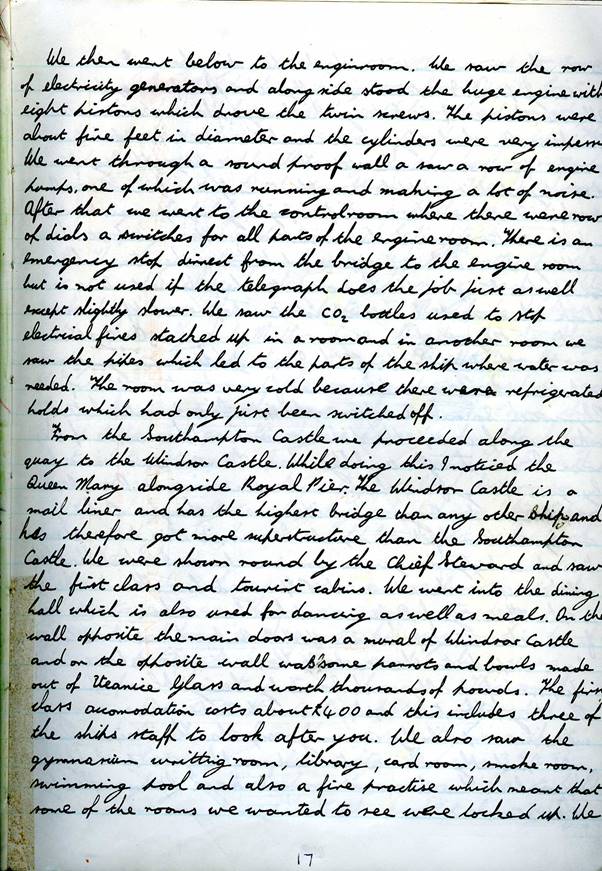 We then went below to the enginroom. We saw the row
of electricity generators and along side stood the huge engine with
eight pistons which drove the twin screws. The pistons were
about five feet in diameter and the cylinders were very
We went through a sound proof wall a saw a row of engine
pumps, one of which was running and making a lot of noise.
After that we went to the controlroom where there were row
of dials a switches for all parts of the engine room. There is an
emergency stop direct from the bridge to the engine room
but is not used if the telegraph does the job just as well
except slightly slower. We saw the CO2 bottles used to stop
electrical fires stacked up in a room and in another room we
saw the pipes which led to the parts of the ship where water was
needed. The room was very cold because there were refrigerated
holds which had only just been switched off.
From the Southampton Castle we proceeded along the
quay to the Windsor Castle. While doing this I noticed the
Queen Mary alongside Royal Pier. The Windsor Castle is a
mail liner and has the highest bridge than any other Ship and
has therefore got more superstructure than the Southampton
Castle. We were shown round by the Chief Steward and saw
the first class and tourist cabins. We went into the dining
hall which is also used for dancing as well as meals. On the
wall opposite the main doors was a mural of Windsor Castle
and on the opposite wall was some parrots and bowls made
out of Veanice Glass and worth thousands of pounds. The first
class accomodation costs about £400 and this includes three of
the ships staff to look after you. We also saw the
gymnasium writting room, library, card room, smoke room,
swimming pool and also a fire practise which meant that
some of the rooms we wanted to see were locked up. We
17